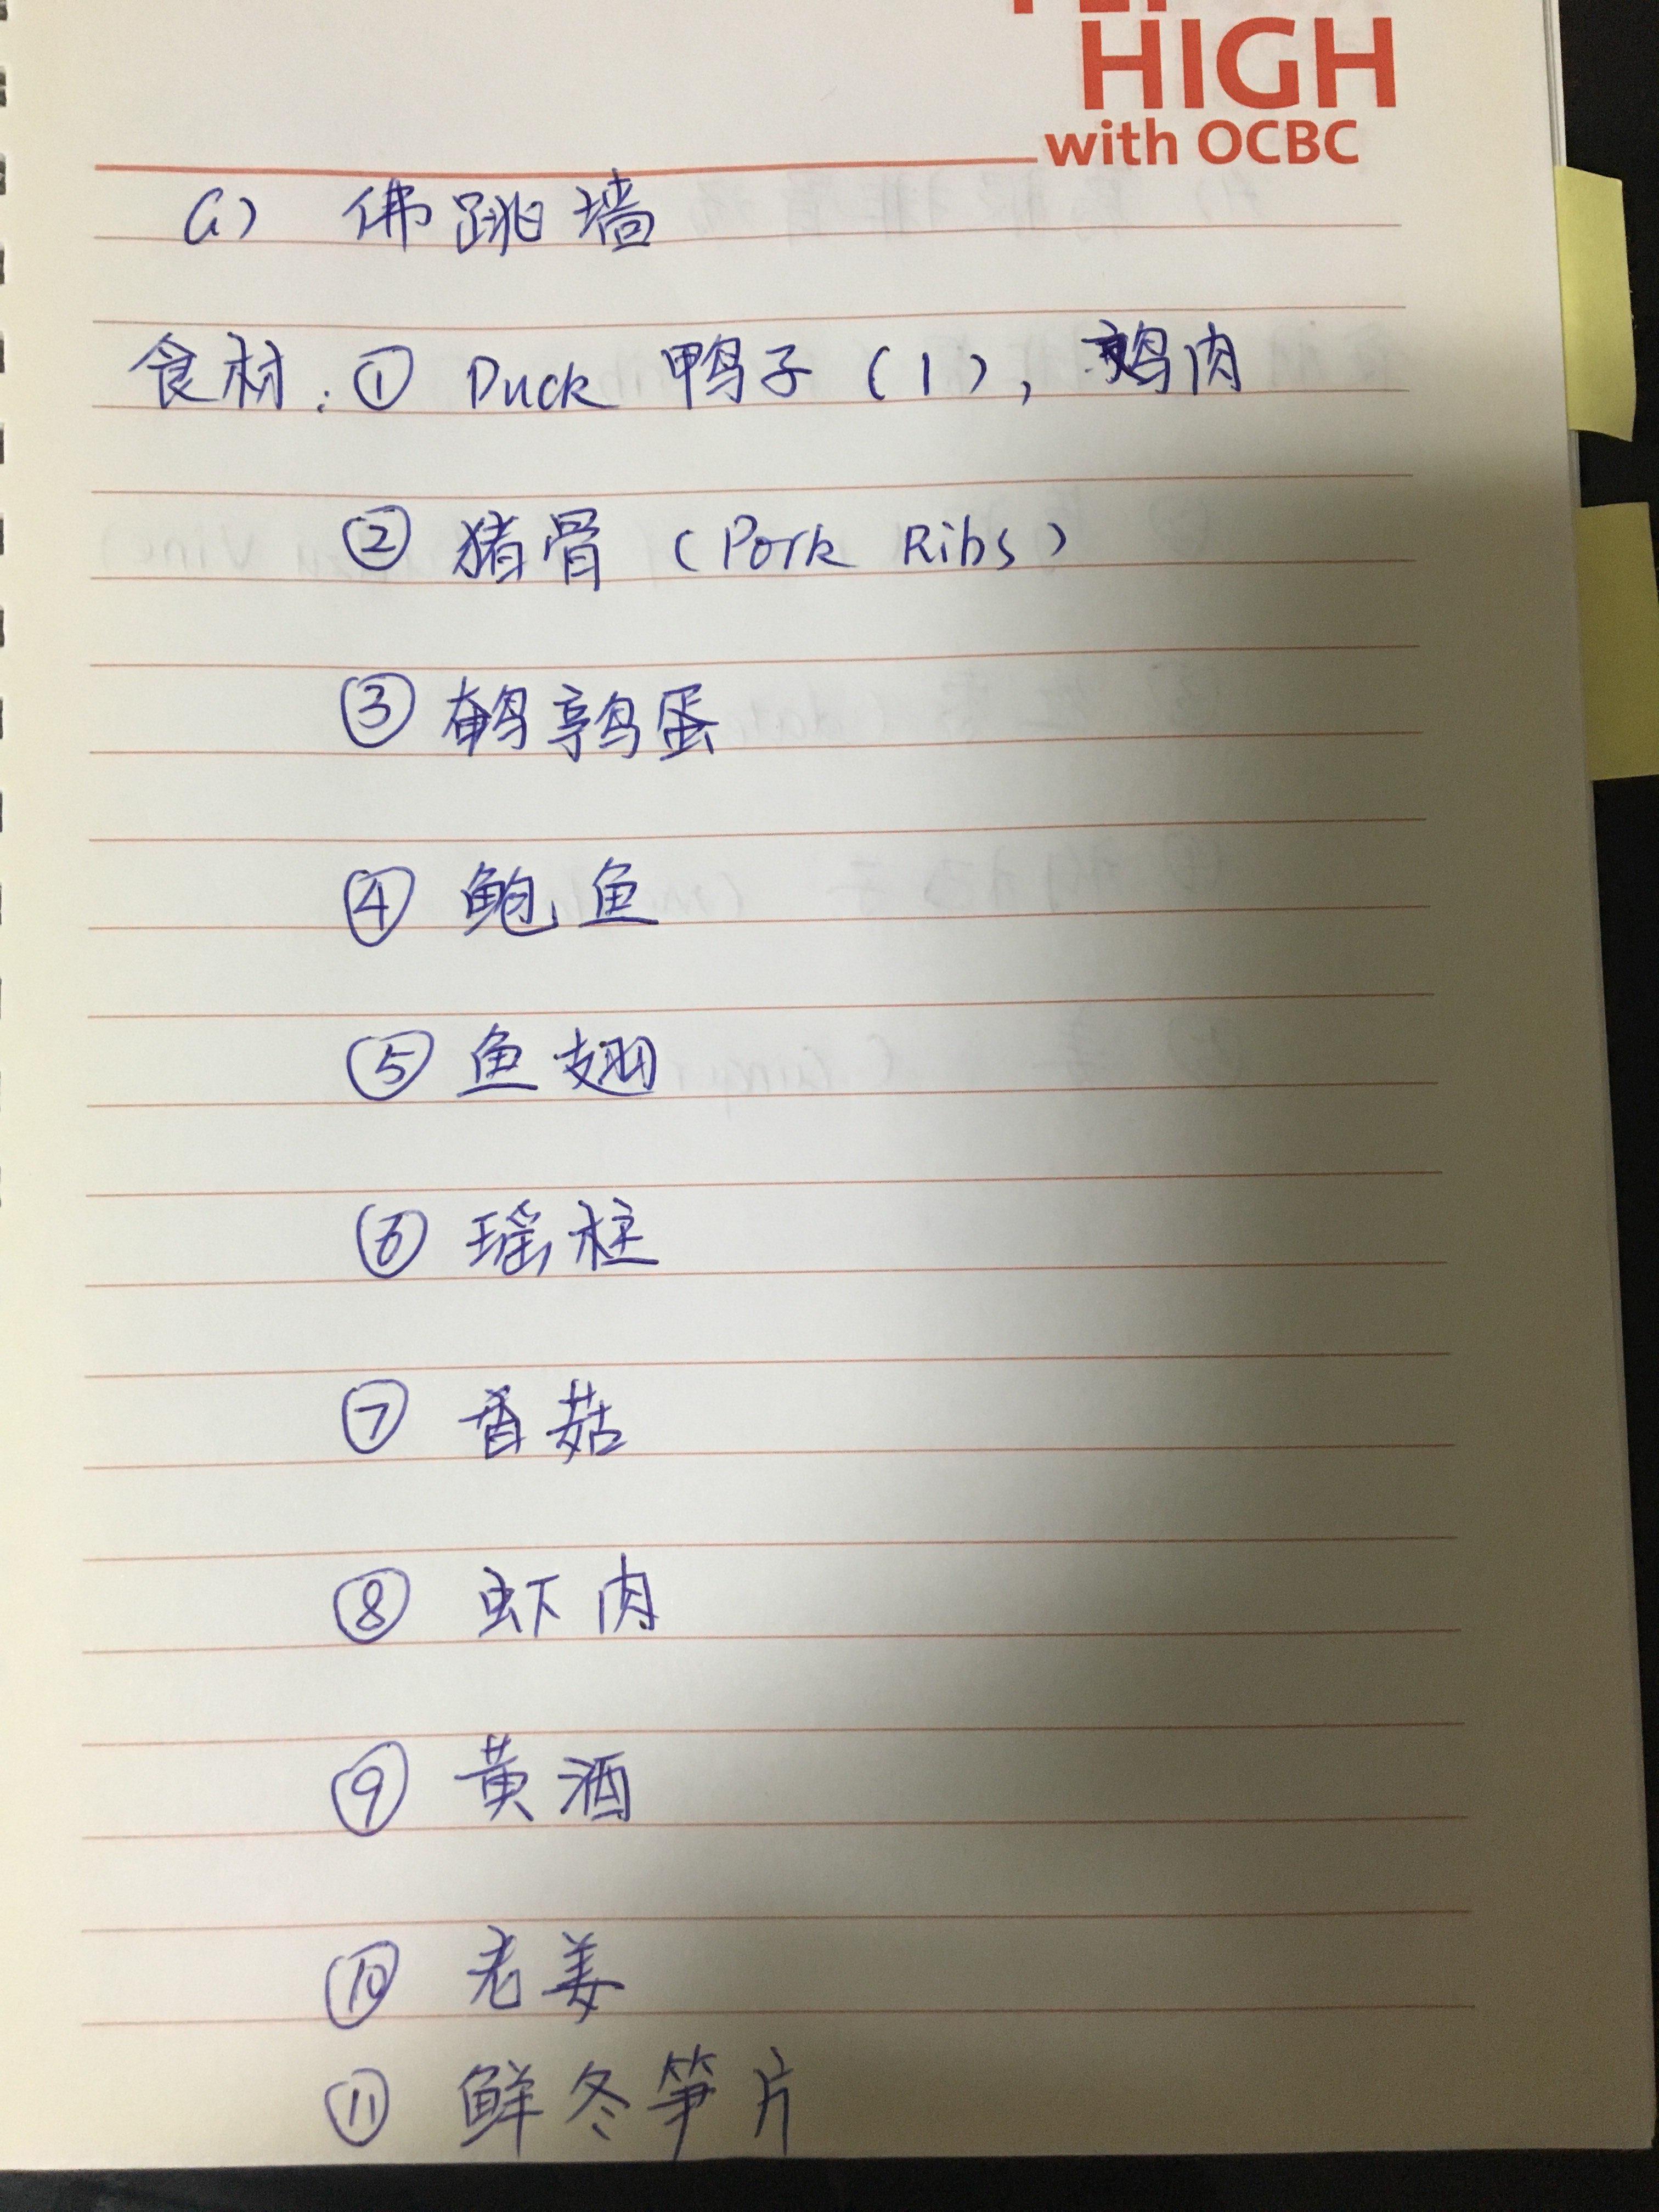 HIGH
with OCBC
G) 佛跳墙
食材: ① Duck 鸭子 (1), 肉
② 猪骨 (Pork Ribs)
③ 鹌鹑蛋
④ 鲍鱼
⑤ 鱼翅
⑥ 瑶柱
⑦ 香菇
⑧ 虾肉
⑨ 黄酒
⑩ 老姜
⑪ 鲜冬笋片